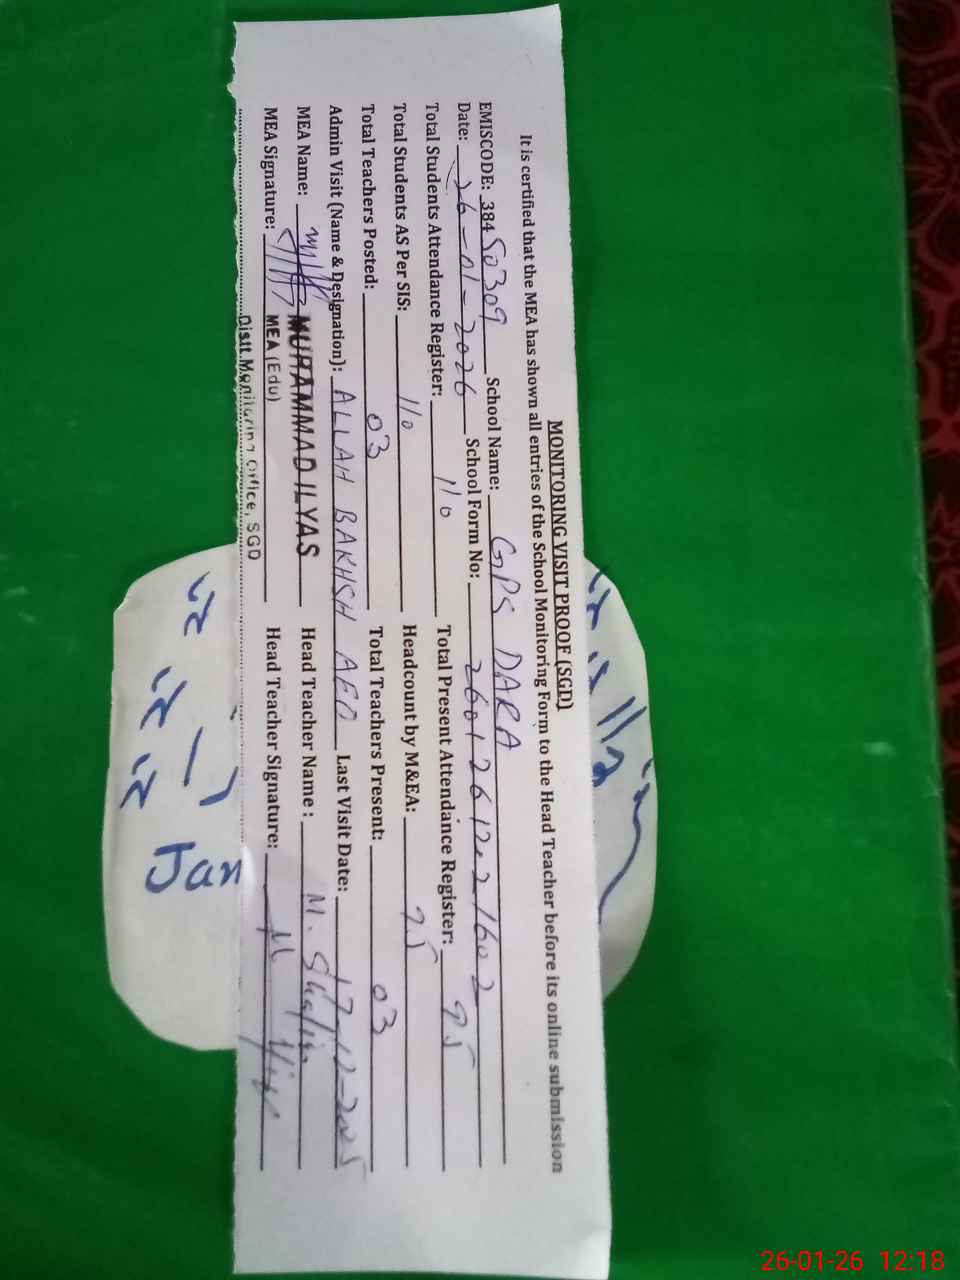 MONITORING VISIT PROOF (SGD)
It is certified that the MEA has shown all entries of the School Monitoring Form to the Head Teacher before its online submission
EMISCODE: 38450309 School Name: GPS DARA
Date: 26-01-2026 School Form No: 2601261221602
Total Students Attendance Register: 110 Total Present Attendance Register: 95
Total Students AS Per SIS: 110 Headcount by M&EA: 95
Total Teachers Posted: 03 Total Teachers Present: 03
Admin Visit (Name & Designation): ALLAH BAKHSH AEO Last Visit Date: 17-12-2025
MEA Name: MUHAMMAD ILYAS Head Teacher Name : M.
MEA Signature: MEA (Edu) Head Teacher Signature:
Distt. Monitoring Office, SGD
Jan
26-01-26 12:18